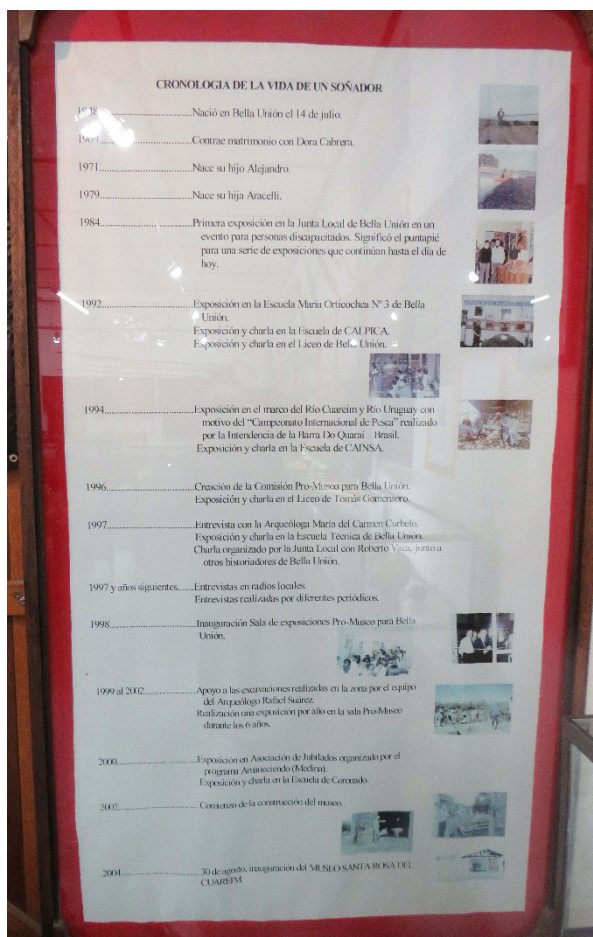 CRONOLOGIA DE LA VIDA DE UN SOÑADOR
1948..............................Nació en Bella Unión el 14 de julio.
1969..............................Contrae matrimonio con Dora Cabrera.
1971..............................Nace su hijo Alejandro.
1979..............................Nace su hija Aracelli.
1984..............................Primera exposición en la Junta Local de Bella Unión en un
evento para personas discapacitados. Significó el puntapié
para una serie de exposiciones que continúan hasta el día de
hoy.
1992..............................Exposición en la Escuela María Orticochea Nº 3 de Bella
Unión.
Exposición y charla en la Escuela de CALPICA.
Exposición y charla en el Liceo de Bella Unión.
1994..............................Exposición en el marco del Río Cuareim y Río Uruguay con
motivo del “Campeonato Internacional de Pesca” realizado
por la Intendencia de la Barra Do Quaraí Brasil.
Exposición y charla en la Escuela de CAINSA.
1996..............................Creación de la Comisión Pro-Museo para Bella Unión.
Exposición y charla en el Liceo de Tomás Gomensoro.
1997..............................Entrevista con la Arqueóloga María del Carmen Curbelo.
Exposición y charla en la Escuela Técnica de Bella Unión.
Charla organizado por la Junta Local con Roberto Vaca, junto a
otros historiadores de Bella Unión.
1997 y años siguientes.......Entrevistas en radios locales.
Entrevistas realizadas por diferentes periódicos.
1998..............................Inauguración Sala de exposiciones Pro-Museo para Bella
Unión.
1999 al 2002...................Apoyo a las excavaciones realizadas en la zona por el equipo
del Arqueólogo Rafael Suárez.
Realización una exposición por año en la sala Pro-Museo
durante los 6 años.
2000..............................Exposición en Asociación de Jubilados organizado por el
programa Amaneciendo (Medina).
Exposición y charla en la Escuela de Coronado.
2002..............................Comienzo de la construcción del museo.
2004..............................30 de agosto, inauguración del MUSEO SANTA ROSA DEL
CUAREIM.